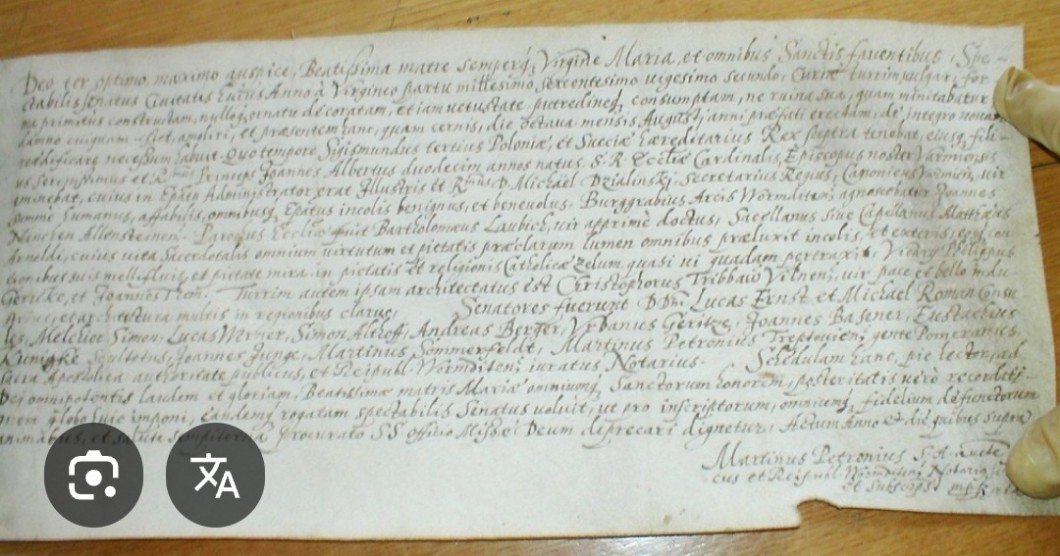 Deo ter optimo, maximo auspice, Beatissima matre semperq; Virgine Maria, et omnibus Sanctis faventibus, Spe-
ctabilis Senatus Civitatis Anno à Virgineo partu millesimo, sexcentesimo vigesimo secundo, turrim for
ma primitus constructam, nullo ornatu decoratam, et iam vetustate, putredineq; consumptam, ne ruina sua, quam minitabatur
damno cuiquam amoliri, et præsentem hanc, quam cernis, die octava mensis Augusti, anni præfati erectam de integro
reædificare necessum habuit. Quo tempore Sigismundus tertius Poloniæ, et Sueciæ hæreditarius Rex sceptra tenebat, eiusq; fili-
us Serenissimus et Princeps Joannes Albertus duodecim annos natus, S. R. Eccliæ Cardinalis, Episcopus noster Varmiensis
eminebat, cuius in Administrator erat Illustris et D. Michaël Dzialinskj Secretarius Regius, Canonicus vir
humanus, affabilis, omnibusq; incolis benignus, et benevolus. Burggrabius Arcis Wormditen: Joannes
Allensteinen: Parochus Eccliæ fuit Bartholomæus Laubich, vir apprimè doctus, Sacellanus sive Capellanus Matthæus
Arnoldi, cuius vita Sacerdotalis omnium virtutum et pietatis præclarum lumen omnibus præluxit incolis, et exteris,
suis mellifluis, et pietate mira, in pietatis et religionis Catholicæ zelum, quasi vi quadam pertraxit, Philippus
Gericke, et Joannes Turrim autem ipsam architectatus est Christophorus Tribbaio Vilnen: vir pace et bello
et architectura multis in regionibus clarus, Senatores fuerunt Lucas Ernst et Michael Roman
Melchior Simon, Lucas Werner, Simon Althoff, Andreas Berger, Urbanus Geritze, Joannes Basener, Eustachius
Joannes Junge, Martinus Sommerfeldt, Martinus Petronius gente Pomeranus
Sacra Apostolica authoritate publicus, et Reipubl. Wormditen: iuratus Notarius. Schedulam hanc, pie lector, ad
Dei omnipotentis laudem et gloriam, Beatissimæ matris Mariæ omniumq; Sanctorum honorem, posteritatis verò
globo huic imponi, eandemq; rogatam spectabilis Senatus voluit, ut pro inscriptorum, omniumq; fidelium defunctorum
animabus, et salute sempiterna procurato SS. officio Missæ Deum deprecari dignetur, Actum Anno et die quibus supra
Martinus Petronius S. A.
et Reipubl. Wormditen: Notarius
et subscripsi